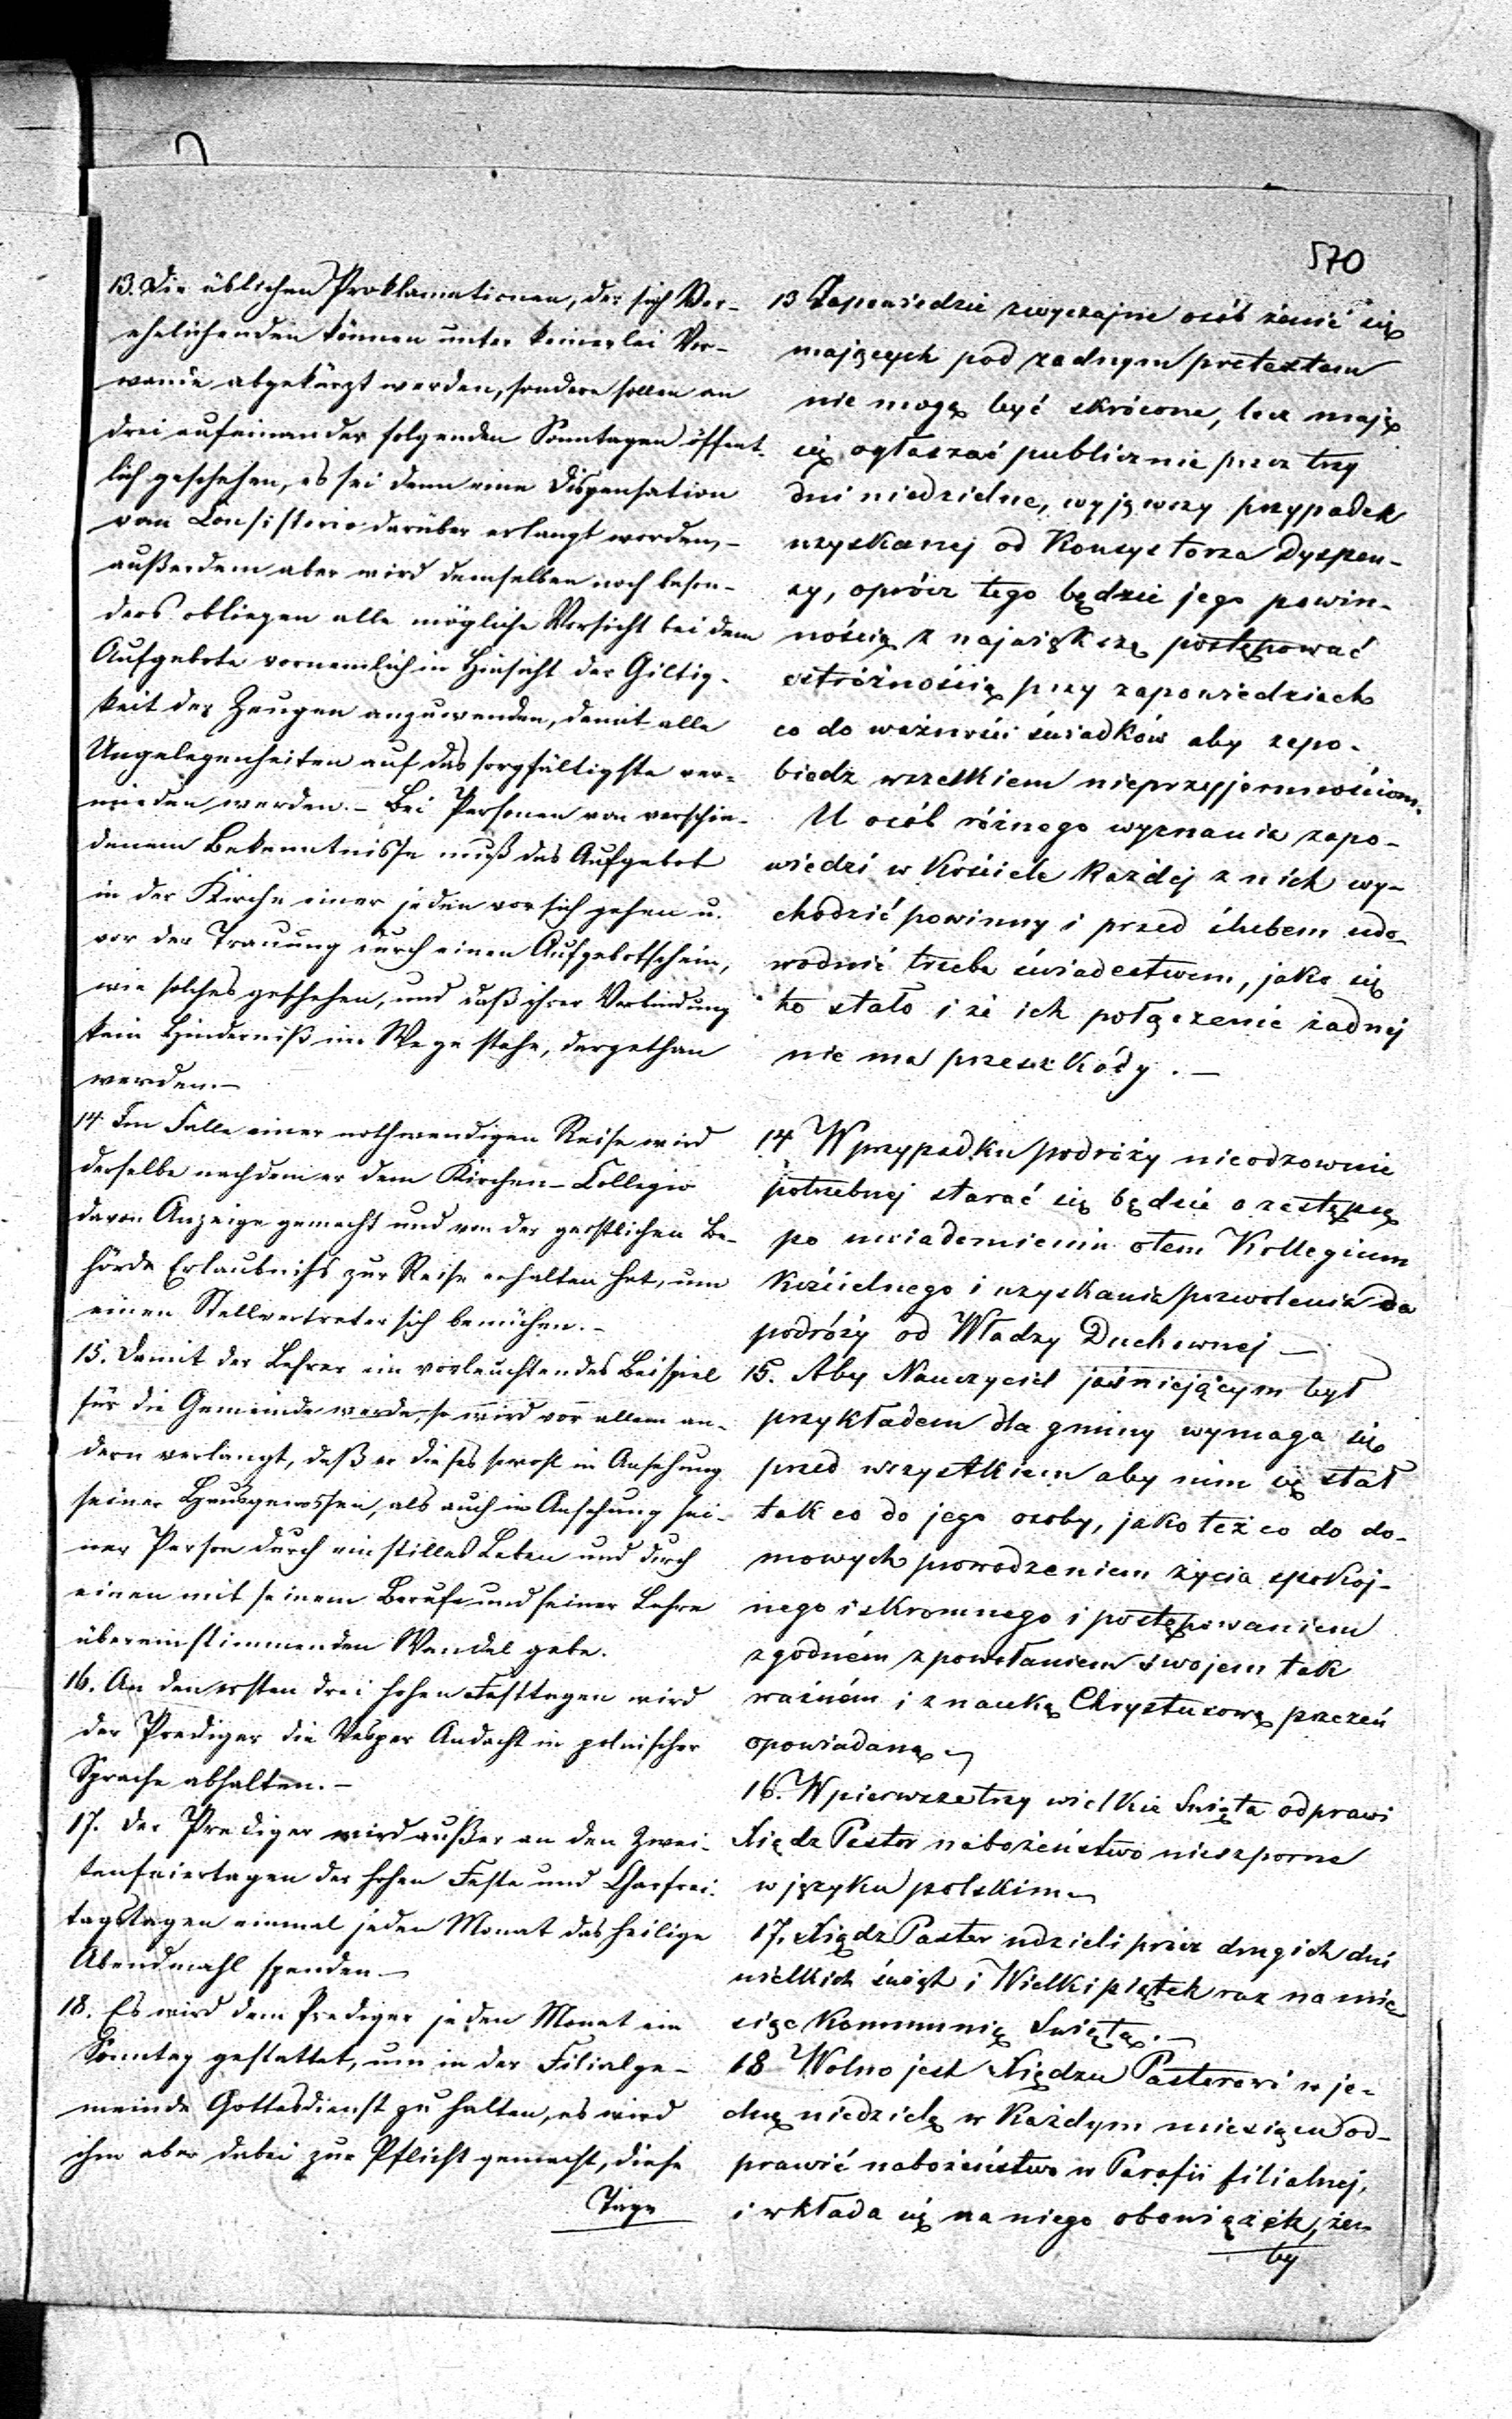 570
13. Die üblichen Proklamationen, der sich Ver-
ehelichenden können unter keinerlei Vor-
wande abgekürzt werden, sondern sollen an
drei aufeinander folgenden Sonntagen öffent-
lich geschehen, es sei denn eine Dispensation
vom Consistorio darüber erlangt worden, –
außerdem aber wird demselben noch beson-
ders obliegen alle mögliche Vorsicht bei dem
Aufgebote vornemlich in Hinsicht der Giltig-
keit der Zeugen anzuwenden, damit alle
Ungelegenheiten auf das sorgfältigste ver-
mieden werden. – Bei Personen von verschie-
denem Bekenntnisse muß das Aufgebot
in der Kirche einer jeden vor sich gehen u.
vor der Trauung durch einen Aufgebotschein,
wie solches geschehen, und daß ihrer Verbindung
kein Hinderniß im Wege stehe, dargethan
werden. –
14. Im Falle einer nothwendigen Reise wird
derselbe nachdem er dem Kirchen-Collegio
davon Anzeige gemacht und von der geistlichen Be-
hörde Erlaubniß zur Reise erhalten hat, um
einen Stellvertreter sich bemühen. –
15. Damit der Lehrer ein vorleuchtendes Beispiel
für die Gemeinde werde, so wird vor allem an-
dern verlangt, daß er dieses sowohl in Ansehung
seiner Hausgenossen, als auch in Ansehung sei-
ner Person durch ein stilles Leben und durch
einen mit seinem Berufe und seiner Lehre
übereinstimmenden Wandel gebe.
16. An den ersten drei hohen Festtagen wird
der Prediger die Vesper Andacht in polnischer
Sprache abhalten. –
17. Der Prediger wird außer an den Zwei-
tenfeiertagen der hohen Feste und Charfrei-
tagstagen einmal jeden Monat das heilige
Abendmahl spenden –
18. Es wird dem Prediger jeden Monat ein
Sonntag gestattet, um in der Filialge-
meinde Gottesdienst zu halten, es wird
ihm aber dabei zur Pflicht gemacht, diese
Tage
13 Zapowiedzie zwyczajne osób żenić się
mających pod żadnym pretextem
nie mogą być skrócone, lecz mają
się ogłaszać publicznie przez trzy
dni niedzielne, wyjąwszy przypadek
uzyskanej od Konsystorza Dyspen-
zy, oprócz tego będzie jego powin-
nością z największą postępować
ostrożnością przy zapowiedziach
co do ważności świadków aby zapo-
biedz wszelkiem nieprzyjemnościom.
U osób różnego wyznania zapo-
wiedzi w Kościele Każdej z nich wy-
chodzić powinny i przed ślubem udo-
wodnić trzeba świadectwem, jako się
to stało i że ich połączenie żadnej
nie ma przeszkódy. –
14 W przypadku podróży nieodzownie
potrzebnej starać się będzie o zastępcę
po uwiadomieniu otem Kollegium
Kościelnego i uzyskania pozwolenia do
podróży od Władzy Duchownej –
15. Aby Nauczyciel jaśniejącym był
przykładem dla gminy wymaga się
przed wszystkiem aby nim się stał
tak co do jego osoby, jako też co do do-
mowych prowadzeniem życia spokoj-
nego i skromnego i postępowaniem
zgodném z powołaniem swojem tak
ważném i z nauką Chrystusową przezeń
opowiadaną –
16. W pierwsze trzy wielkie Święta odprawi
Xiądz Pastor nabożeństwo nieszporne
w języku polskim –
17. Xiądz Pastor udzieli prócz drugich dni
wielkich świąt i Wielki piątek raz na mie
siąc Kommunię Świętą. –
18 Wolno jest Xiędzu Pastorowi w je-
dną niedzielę w Każdym miesiącu od-
prawić nabożeństwo w Parafii filialnej,
i wkłada się na niego obowiązek, że-
by